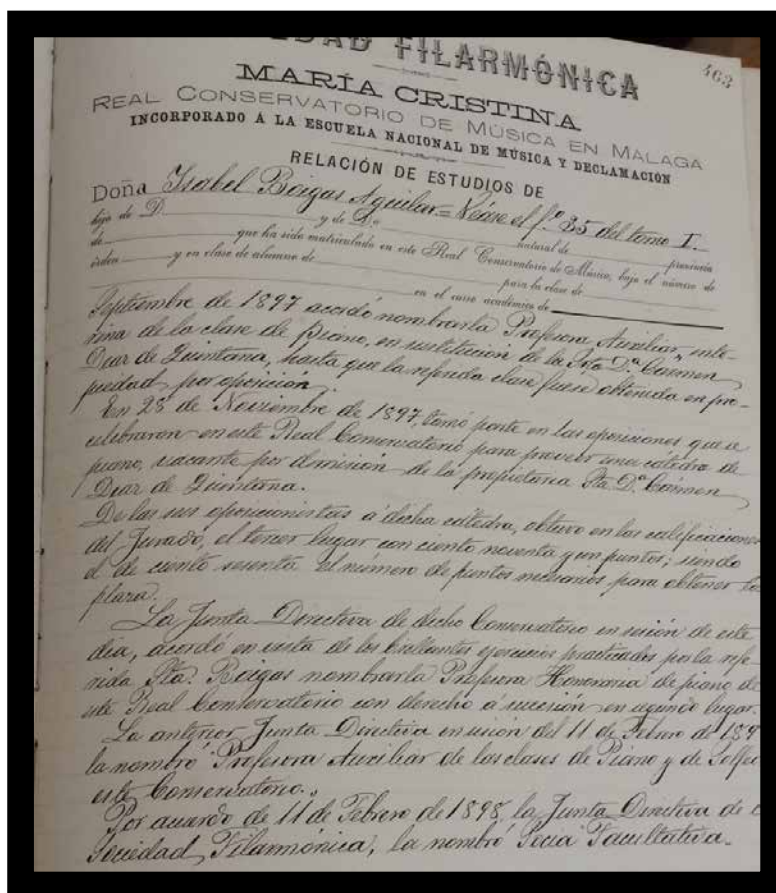 IDAD FILARMÓNICA
463
MARÍA CRISTINA
REAL CONSERVATORIO DE MÚSICA EN MÁLAGA
INCORPORADO Á LA ESCUELA NACIONAL DE MÚSICA Y DECLAMACIÓN
RELACIÓN DE ESTUDIOS DE
Doña Isabel Boigas Aguilar = Véase el f.º 35 del tomo I.
hijo de D. y de D.ª natural de provincia
de que ha sido matriculado en este Real Conservatorio de Música, bajo el número de
orden y en clase de alumno de para la clase de
en el curso académico de
Septiembre de 1897 acordó nombrarla Profesora Auxiliar, inte-
rina de la clase de piano, en sustitución de la Srta D.ª Carmen
Diaz de Quintana, hasta que la referida clase fuese obtenida en pro-
piedad por oposición.
En 28 de Noviembre de 1897, tomó parte en las oposiciones que se
celebraron en este Real Conservatorio para proveer una cátedra de
piano, vacante por dimisión de la propietaria Sta D.ª Cármen
Diaz de Quintana.
De las seis oposicionistas á dicha cátedra, obtuvo en las calificaciones
del Jurado, el tercer lugar con ciento noventa y un puntos; siendo
el de ciento sesenta el número de puntos necesarios para obtener la
plaza.
La Junta Directiva de dicho Conservatorio en sesión de este
día, acordó en vista de los brillantes ejercicios practicados por la refe-
rida Sta. Boigas nombrarla Profesora Honoraria de piano de
este Real Conservatorio con derecho á sucesión en segundo lugar.
La anterior Junta Directiva en sesión del 11 de Febrero de 189
la nombró Profesora Auxiliar de las clases de Piano y de Solfeo
este Conservatorio.
Por acuerdo de 11 de Febrero de 1898, la Junta Directiva de
Sociedad Filarmónica, la nombró Socia Facultativa.